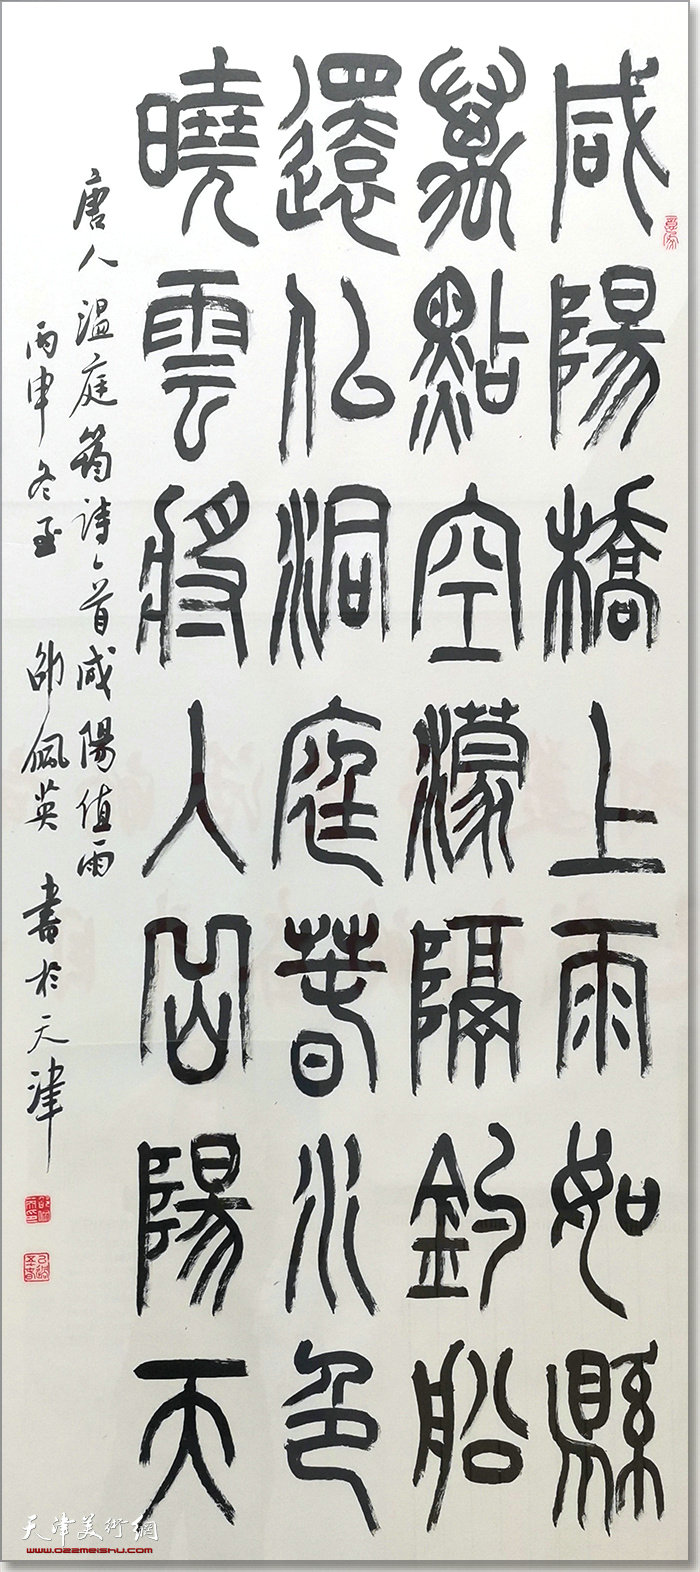 咸陽橋上雨如縣
萬點空濛隔釣船
還似洞庭春水色
曉雲將入岳陽天
唐人温庭筠詩一首咸陽值雨
丙申冬至 邵佩英 書於天津
天津美術網
www.022meishu.com